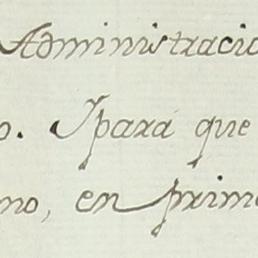 Administracio
o. Ypara que
no, en prime